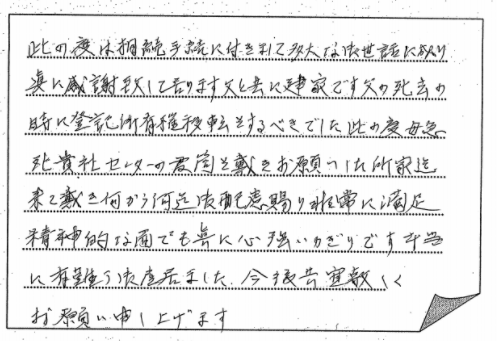 此の度は相続手続に付きまして多大な御世話に成り
真に感謝致して居ります父と共に建家です父の死去の
時に登記所有権移転をするべきでした此の度母急
死貴社センターの君岡を戴きお願いした所家迄
来て戴き何から何迄御配慮賜り非常に満足
精神的な面でも共に心強いかぎりです本当
に有難う御座居ました、今後共宜敷く
お願い申し上げます